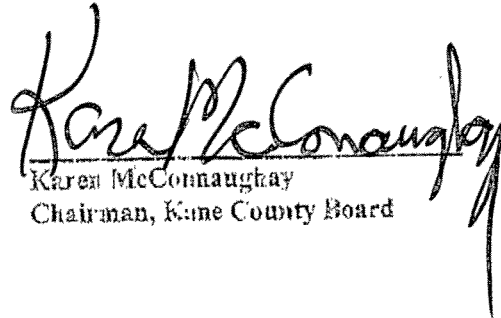 Karen McConnaughay
Karen McConnaughay
Chairman, Kane County Board